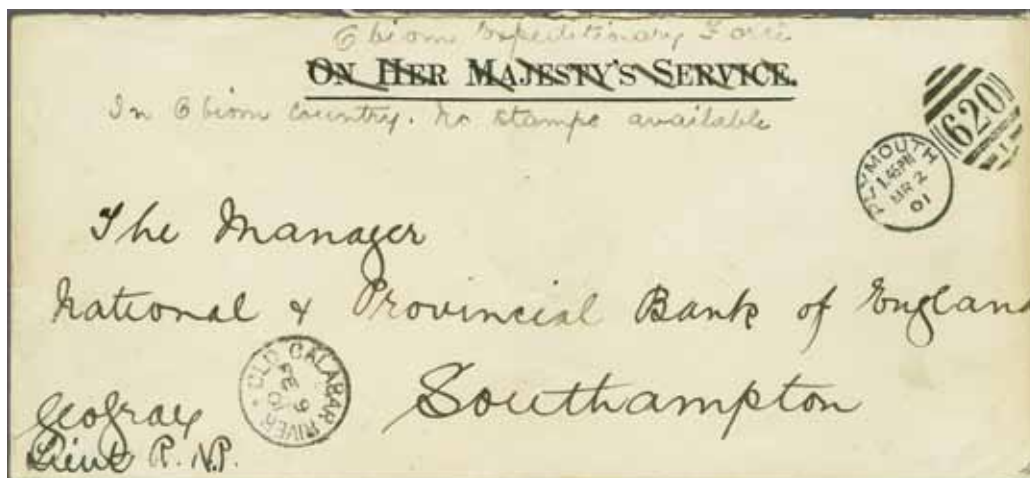 Obiom Expeditionary Force
ON HER MAJESTY'S SERVICE.
In Obiom Country. No stamps available
620
1
PLYMOUTH
1.45PM
MR 2
01
The Manager
National & Provincial Bank of England
Southampton
OLD CALABAR RIVER
FE 9
01
Geo Gray
Lieut R.N.R.